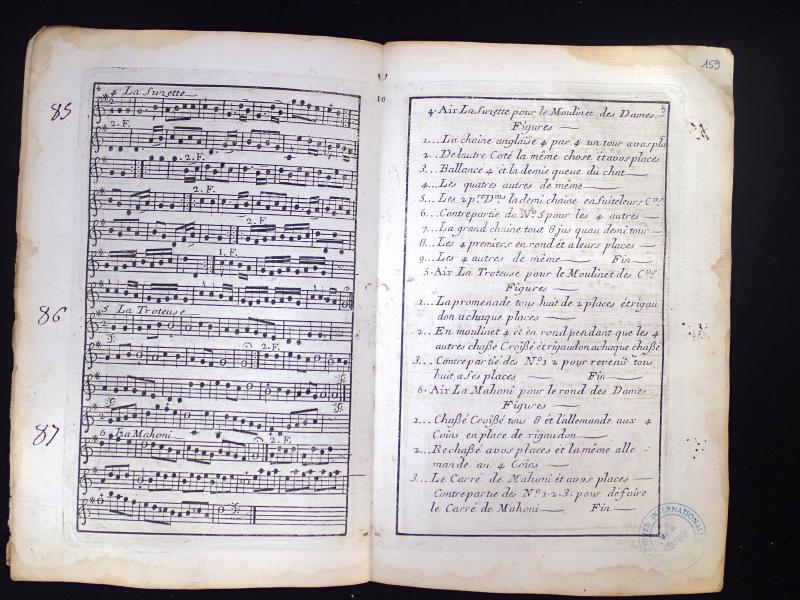 85
4 La Suzette
2. F.
2. F.
2. F.
2. F.
1. F.
86
5 La Troteuse
2. F.
87
6 La Mahoni
2. F.
10
159
5
4. Air La Suzette pour le Moulinet des Dames.
Figures
1... La chaine anglaise 4 par 4 un tour a vos pla
2... De lautre Coté la même chose et a vos places
3... Ballance 4 et la demie queue du chat
4... Les quatres autres de même
5... Les 2 prs Dms la demi chaine ensuite leurs Cvs
6... Contrepartie du No. 5 pour les 4 autres
7... La grand chaine tout 8 jus quau demi tour
8... Les 4 premiers en rond et a leurs places
9... Les 4 autres de même Fin
5. Air La Troteuse pour le Moulinet des Cvs
Figures
1... La promenade tous huit de 2 places et rigau
don a chaque places
2... En moulinet 4 et en rond pendant que les 4
autres chaßé Croißé et rigaudon a chaque chaßé
3... Contrepartie des No. 1 2 pour revenir tous
huit a ses places Fin
6. Air La Mahoni pour le rond des Dames
Figures
1... Chaßé Croißé tous 8 et l'allemande aux 4
Coins en place de rigaudon
2... Rechaßé a vos places et la même alle =
mande au 4 Coins
3... Le Carré de Mahoni et a vos places
Contrepartie des No. 1. 2. 3. pour défaire
le Carré de Mahoni Fin
INTERNATIONAL